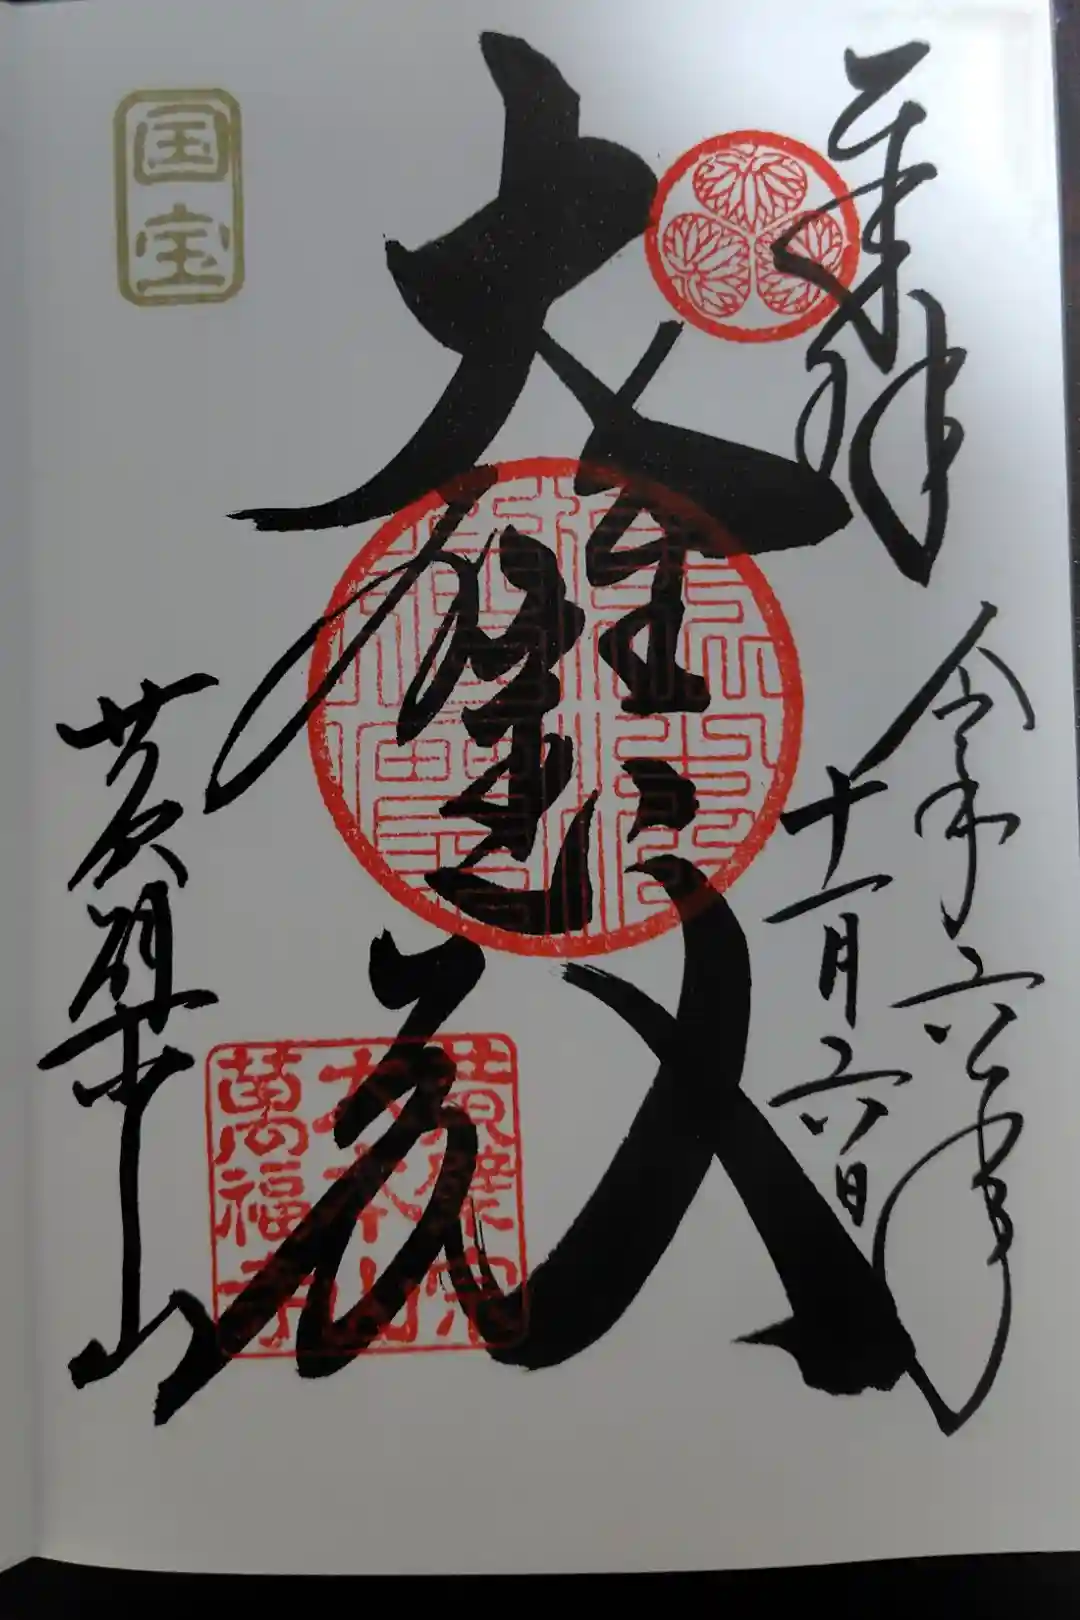 奉拝
令和六年
十一月六日
大雄宝殿
黄檗山
国宝
黄檗宗
大本山
萬福寺